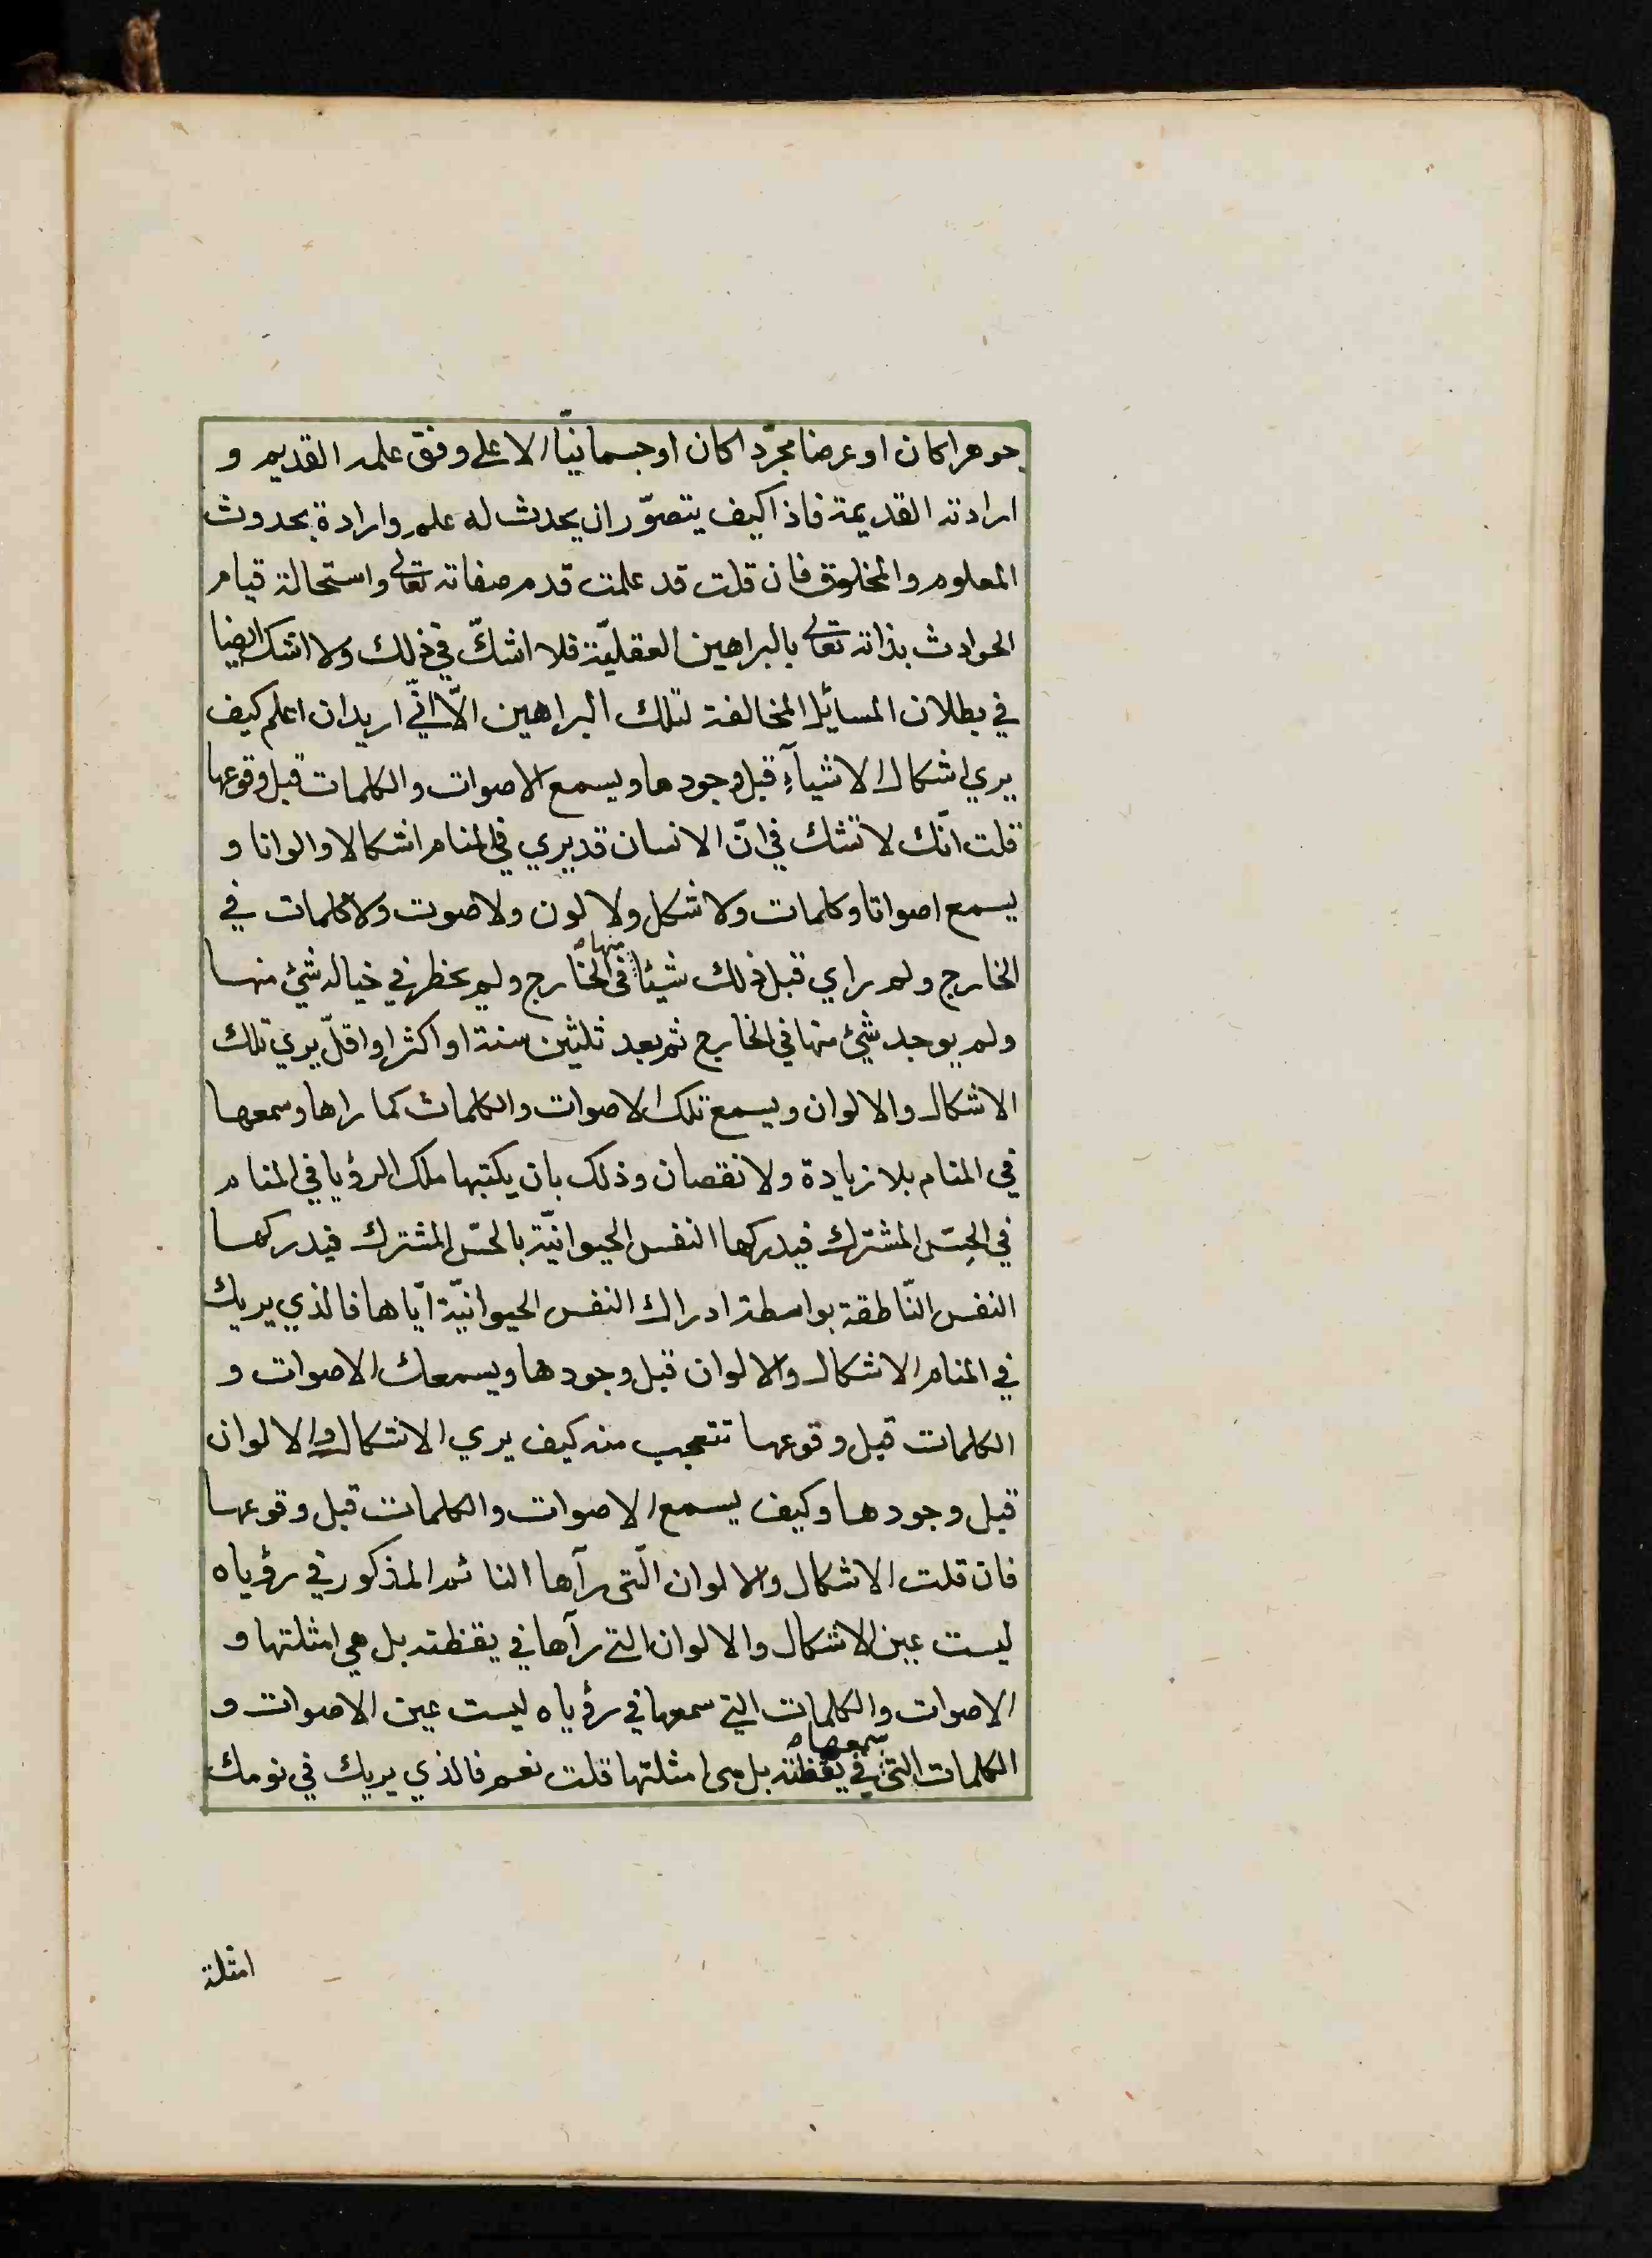 جوهرا كان او عرضا مجرّدا كان او جسمانيّا الا على وفق علمه القديم و
ارادته القديمة فاذا كيف يتصوّر ان يحدث له علم وارادة بحدوث
المعلوم والمخلوق فان قلت قد علمت قدم صفاته تعالى واستحالة قيام
الحوادث بذاته تعالى بالبراهين العقليّة فلا اشكّ في ذلك ولا اشك ايضا
في بطلان المسائل المخالفة لتلك البراهين الّا انّي اريد ان اعلم كيف
يري اشكال الاشيآء قبل وجودها ويسمع الاصوات والكلمات قبل وقوعها
قلت انّك لا تشك في انّ الانسان قد يري في المنام اشكالا والوانا و
يسمع اصواتا وكلمات ولا شكل ولا لون ولا صوت ولا كلمات في
الخارج ولم راي قبل ذلك شيئا منها في الخارج ولم يخطر في خياله شيئ منها
ولم يوجد شيئ منها في الخارج ثم بعد ثلثين سنة او اكثر او اقلّ يري تلك
الاشكال والالوان ويسمع تلك الاصوات والكلمات كما راها وسمعها
في المنام بلا زيادة ولا نقصان وذلك بان يكتبها ملك الرؤيا في المنام
في الحِسّ المشترك فيدركها النفس الحيوانيّة بالحسّ المشترك فيدركها
النفس النّاطقة بواسطة ادراك النفس الحيوانيّة ايّاها فالذي يريك
في المنام الاشكال والالوان قبل وجودها ويسمعك الاصوات و
الكلمات قبل وقوعها تتعجب منه كيف يري الاشكال والالوان
قبل وجودها وكيف يسمع الاصوات والكلمات قبل وقوعها
فان قلت الاشكال والالوان الّتى رآها النائم المذكور في رؤياه
ليست عين الاشكال والالوان التي رآها في يقظته بل هي امثلتها و
الاصوات والكلمات التي سمعها في رؤياه ليست عين الاصوات و
الكلمات التى سمعها في يقظته بل هى امثلتها قلت نعم فالذي يريك في نومك
امثلة